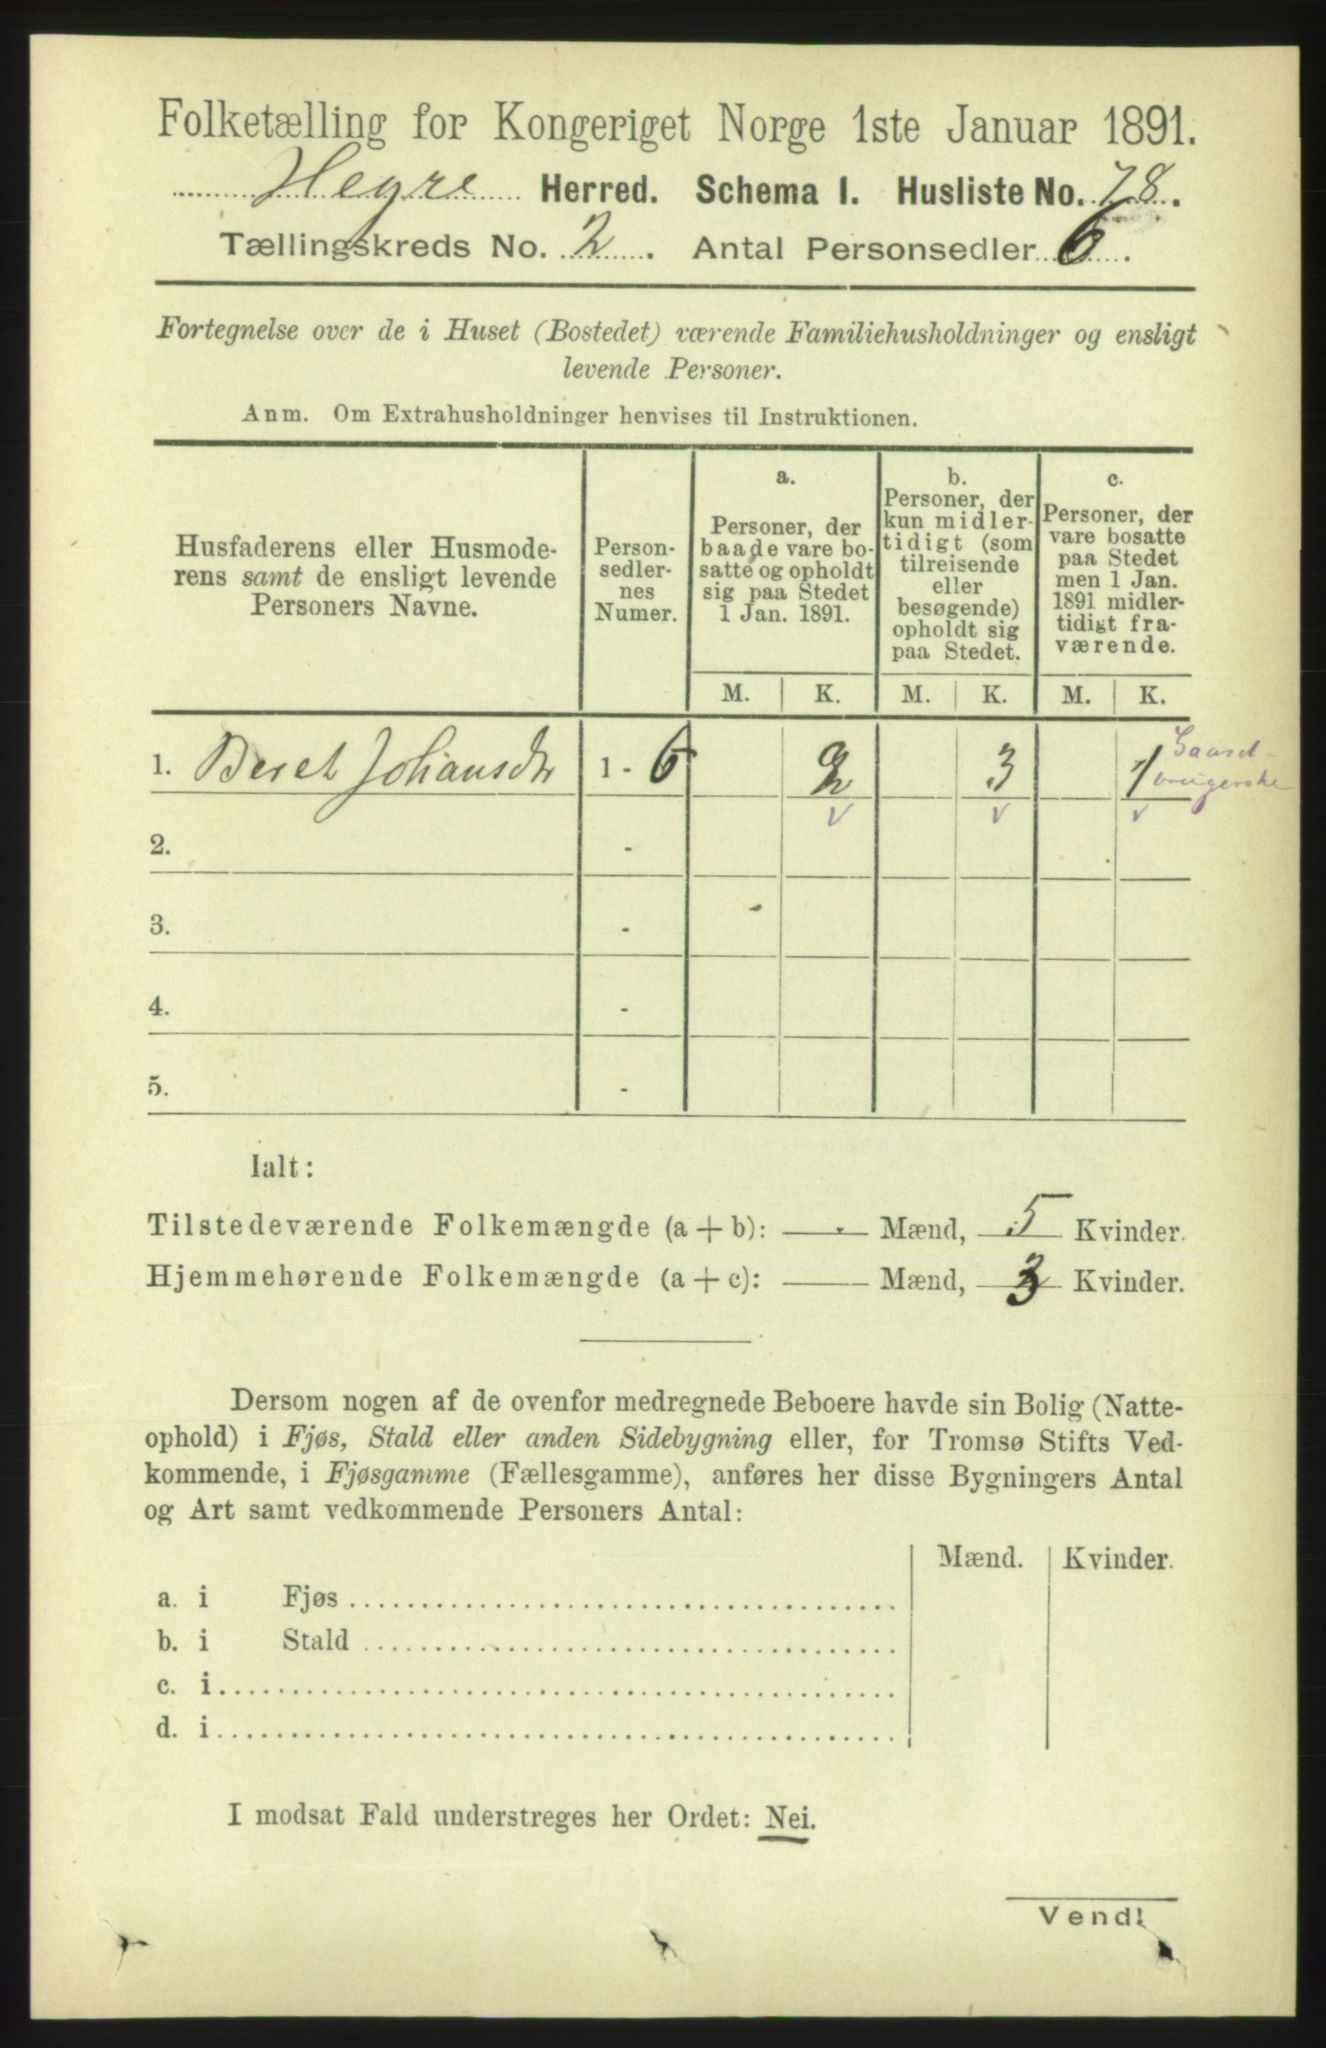 Folketælling for Kongeriget Norge 1ste Januar 1891.
Hegre Herred. Schema I. Husliste No. 78.
Tællingskreds No. 2. Antal Personsedler 6.
Fortegnelse over de i Huset (Bostedet) værende Familiehusholdninger og ensligt
levende Personer.
Anm. Om Extrahusholdninger henvises til Instruktionen.
Husfaderens eller Husmode-
rens samt de ensligt levende
Personers Navne.
Person-
sedler-
nes
Numer.
a.
Personer, der
baade vare bo-
satte og opholdt
sig paa Stedet
1 Jan. 1891.
b.
Personer, der
kun midler-
tidigt (som
tilreisende
eller
besøgende)
opholdt sig
paa Stedet.
c.
Personer, der
vare bosatte
paa Stedet
men 1 Jan.
1891 midler-
tidigt fra-
værende.
M. K. M. K. M. K.
1. Beret Johansdr 1 - 6 2 3 1 Gaard-
brugerske
v v v
2. -
3. -
4. -
5. -
Ialt:
Tilstedeværende Folkemængde (a + b): — Mænd, 5 Kvinder.
Hjemmehørende Folkemængde (a + c): — Mænd, 3 Kvinder.
Dersom nogen af de ovenfor medregnede Beboere havde sin Bolig (Natte-
ophold) i Fjøs, Stald eller anden Sidebygning eller, for Tromsø Stifts Ved-
kommende, i Fjøsgamme (Fællesgamme), anføres her disse Bygningers Antal
og Art samt vedkommende Personers Antal:
Mænd. Kvinder.
a. i Fjøs
b. i Stald
c. i
d. i
I modsat Fald understreges her Ordet: Nei.
Vend!